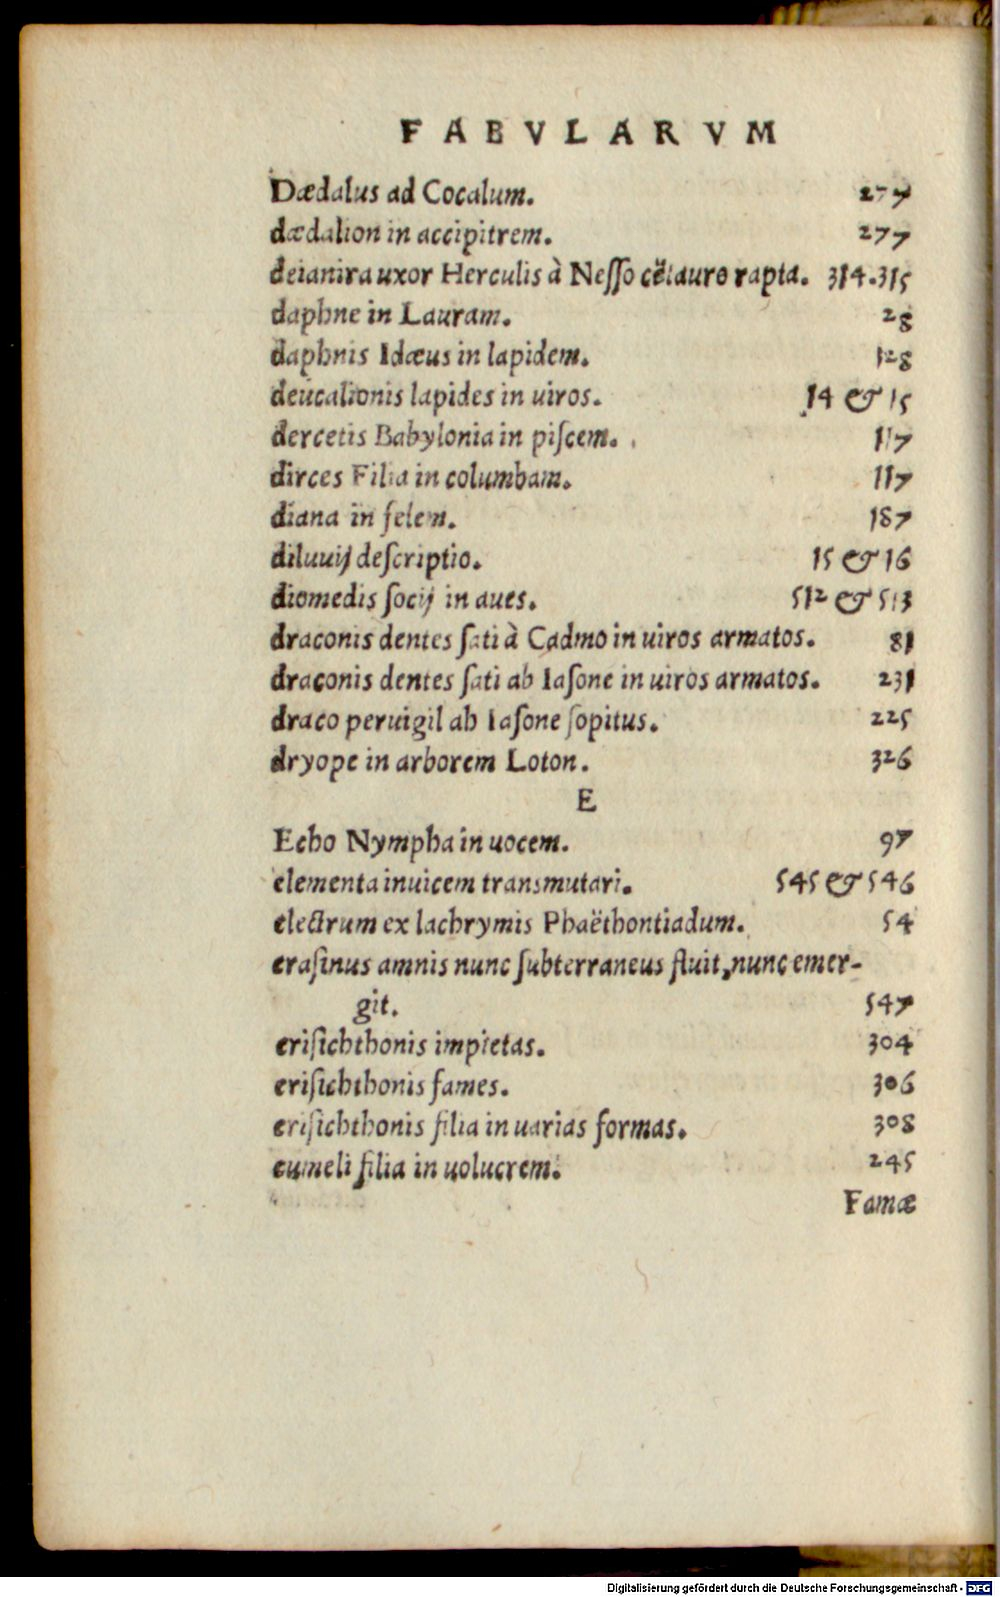 FABVLARVM
Dædalus ad Cocalum. 277
dædalion in accipitrem. 277
deianira uxor Herculis à Nesso cẽtauro rapta. 314.315
daphne in Lauram. 28
daphnis Idæus in lapidem. 128
deucalionis lapides in uiros. 14 & 15
dercetis Babylonia in piſcem. 117
dirces Filia in columbam. 117
diana in felem. 187
diluuij deſcriptio. 15 & 16
diomedis ſocij in aues. 512 & 513
draconis dentes ſati à Cadmo in uiros armatos. 81
draconis dentes ſati ab Iaſone in uiros armatos. 231
draco peruigil ab Iaſone ſopitus. 225
dryope in arborem Loton. 326
E
Echo Nympha in uocem. 97
elementa inuicem transmutari. 545 & 546
electrum ex lachrymis Phaëthontiadum. 54
eraſinus amnis nunc ſubterraneus fluit, nunc emer-
git. 547
eriſichthonis impietas. 304
eriſichthonis fames. 306
eriſichthonis filia in uarias formas. 308
eumeli filia in uolucrem. 245
Famæ
Digitalisierung gefördert durch die Deutsche Forschungsgemeinschaft - DFG